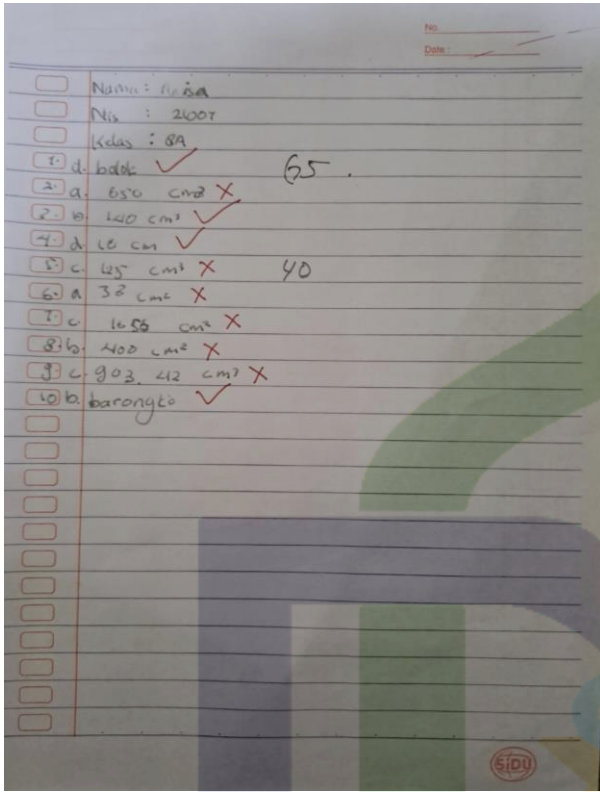 No.
Date :
Nama :
Nis : 24007
Kelas : 8A
65.
1. d. balok
2. a. 650 cm³
3. b. 440 cm³
4. d. 10 cm
5. c. 125 cm³
40
6. a. 38 cm²
7. c. 1656 cm²
8. b. 400 cm²
9. c. 903, 42 cm³
10 b. barongko
SiDU